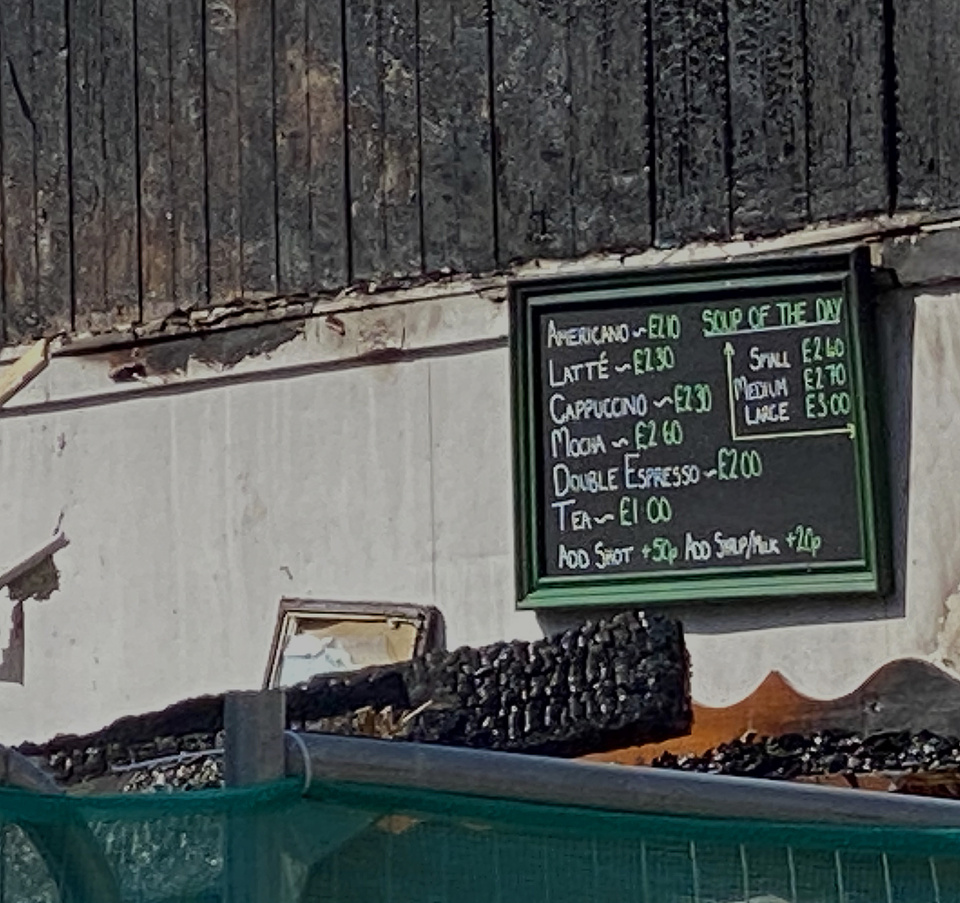 AMERICANO ~ £2.10
LATTÉ ~ £2.30
CAPPUCCINO ~ £2.30
MOCHA ~ £2.60
DOUBLE ESPRESSO ~ £2.00
TEA ~ £1.00
ADD SHOT +50p ADD SYRUP/MILK +20p
SOUP OF THE DAY
SMALL £2.60
MEDIUM £2.70
LARGE £3.00